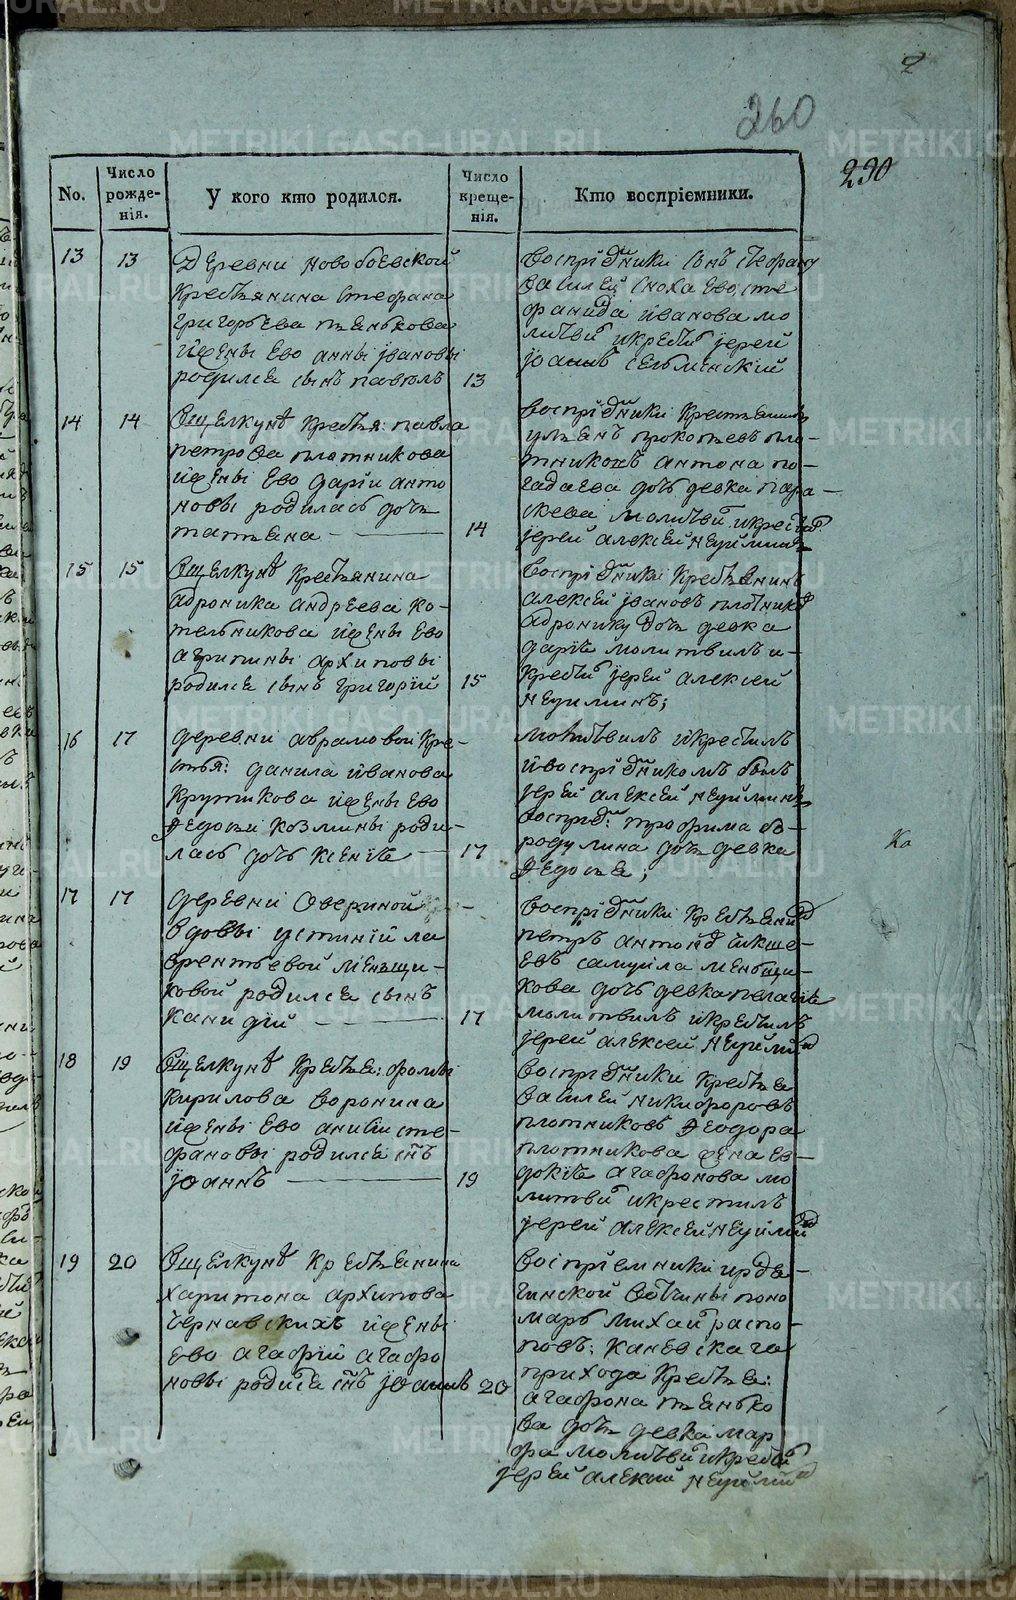 2
260
290
No.
Число рожде-нія.
У кого кто родился.
Число креще-нія.
Кто воспріємники.
13
13
Деревни новобоевской
крестьянина Стефана
григорьева пьянкова
ижены Ево анны јвановы
родился сынъ павелъ
13
воспріемники сынъ Стефану
василей сноха Ево, сте
фанида иванова мо
литвилъ икрестилъ јерей
јоаннъ
14
14
Вщелкунѣ крестья: павла
петрова плотникова
ижены Ево дарьи анто
новы родилась дочь
татьяна
14
воспріемники крестьянинъ
ульянъ прокопьевъ пло-
тниковъ антона по-
гадаева дочь девка пара-
скева молитвилъ икрестилъ
јерей алексей
15
15
Вщелкунѣ крестьянина
адроника андреева ко-
тельникова ижены ево
агрипины архиповы
родился сынъ григорій
15
воспріемники крестьянинъ
алексей јвановъ плотниковъ
адронику дочь девка
дарія молитвилъ и-
крестилъ јерей алексей
16
17
деревни аврамовой кре-
стья: данила иванова
крутикова ижены ево
федосьи козмины роди-
лась дочь ксенія
17
молитвилъ икрестилъ
ивоспріемникомъ былъ
јерей алексей
воспріем: трофима бо-
родулина дочь девка
федосья;
Ка
17
17
деревни Овериной
вдовы устиніи ла
врентьевой меньщи-
ковой родился сынъ
канидій
17
воспріемники крестьянинъ
петръ антоновъ икше-
евъ самуила меньщи-
кова дочь девка пелагія
молитвилъ икрестилъ
јерей алексей
18
19
Вщелкунѣ крестья: фомы
кирилова воронина
ижены ево анисьи сте-
фановы родился сынъ
јоаннъ
19
воспріемники крестья
василей никифоровъ
плотниковъ феодора
плотникова жена ев-
докія агафонова мо
литвилъ икрестилъ
јерей алексей
19
20
Вщелкунѣ крестьянина
харитона архипова
чернавскихъ ижены
ево агафіи агафо
новы родился сынъ јоаннъ
20
воспріемники
гинской воѣчины поно
марь михайла распо-
повъ; каневскаго
прихода крестья:
агафона пьянко
ва дочь девка мар
фа молитвилъ икрестилъ
јерей алексей
METRIKI.GASO-URAL.RU